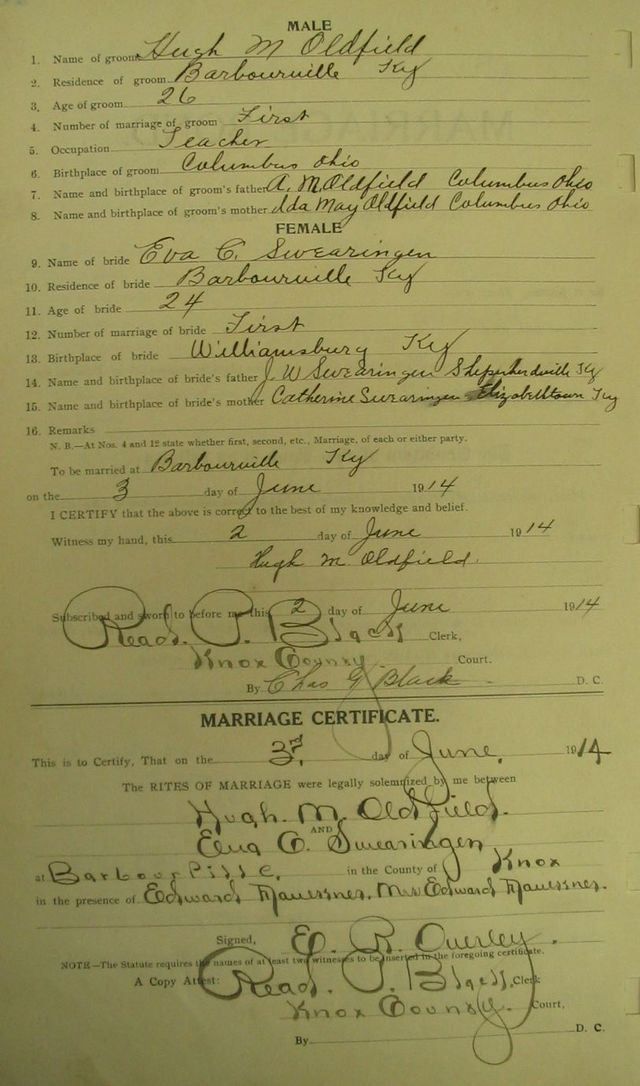 MALE
1. Name of groom Hugh M Oldfield
2. Residence of groom Barbourville Ky
3. Age of groom 26
4. Number of marriage of groom First
5. Occupation Teacher
6. Birthplace of groom Columbus Ohio
7. Name and birthplace of groom's father A. M Oldfield Columbus Ohio
8. Name and birthplace of groom's mother Ida May Oldfield Columbus Ohio
FEMALE
9. Name of bride Eva C. Swearingen
10. Residence of bride Barbourville Ky
11. Age of bride 24
12. Number of marriage of bride First
13. Birthplace of bride Williamsburg Ky
14. Name and birthplace of bride's father J. W Swearingen Shepherdsville Ky
15. Name and birthplace of bride's mother Catherine Swearingen Elizabethtown Ky
16. Remarks
N. B.—At Nos. 4 and 12 state whether first, second, etc., Marriage, of each or either party.
To be married at Barbourville Ky
on the 3 day of June 1914
I CERTIFY that the above is correct to the best of my knowledge and belief.
Witness my hand, this 2 day of June 1914
Hugh M Oldfield.
Subscribed and sworn to before me this 2 day of June 1914
Read. P. Black Clerk,
Knox County. Court.
By Chas G Black D. C.
MARRIAGE CERTIFICATE.
This is to Certify, That on the 3rd. day of June, 1914
The RITES OF MARRIAGE were legally solemnized by me between
Hugh. M. Oldfield.
AND
Eva C. Swearingen
at Barbourville. in the County of Knox
in the presence of Edward Mrs Edward
Signed, E. R. Overley.
NOTE—The Statute requires the names of at least two witnesses to be inserted in the foregoing certificate.
A Copy Attest: Read. P. Black, Clerk
Knox County. Court,
By D. C.